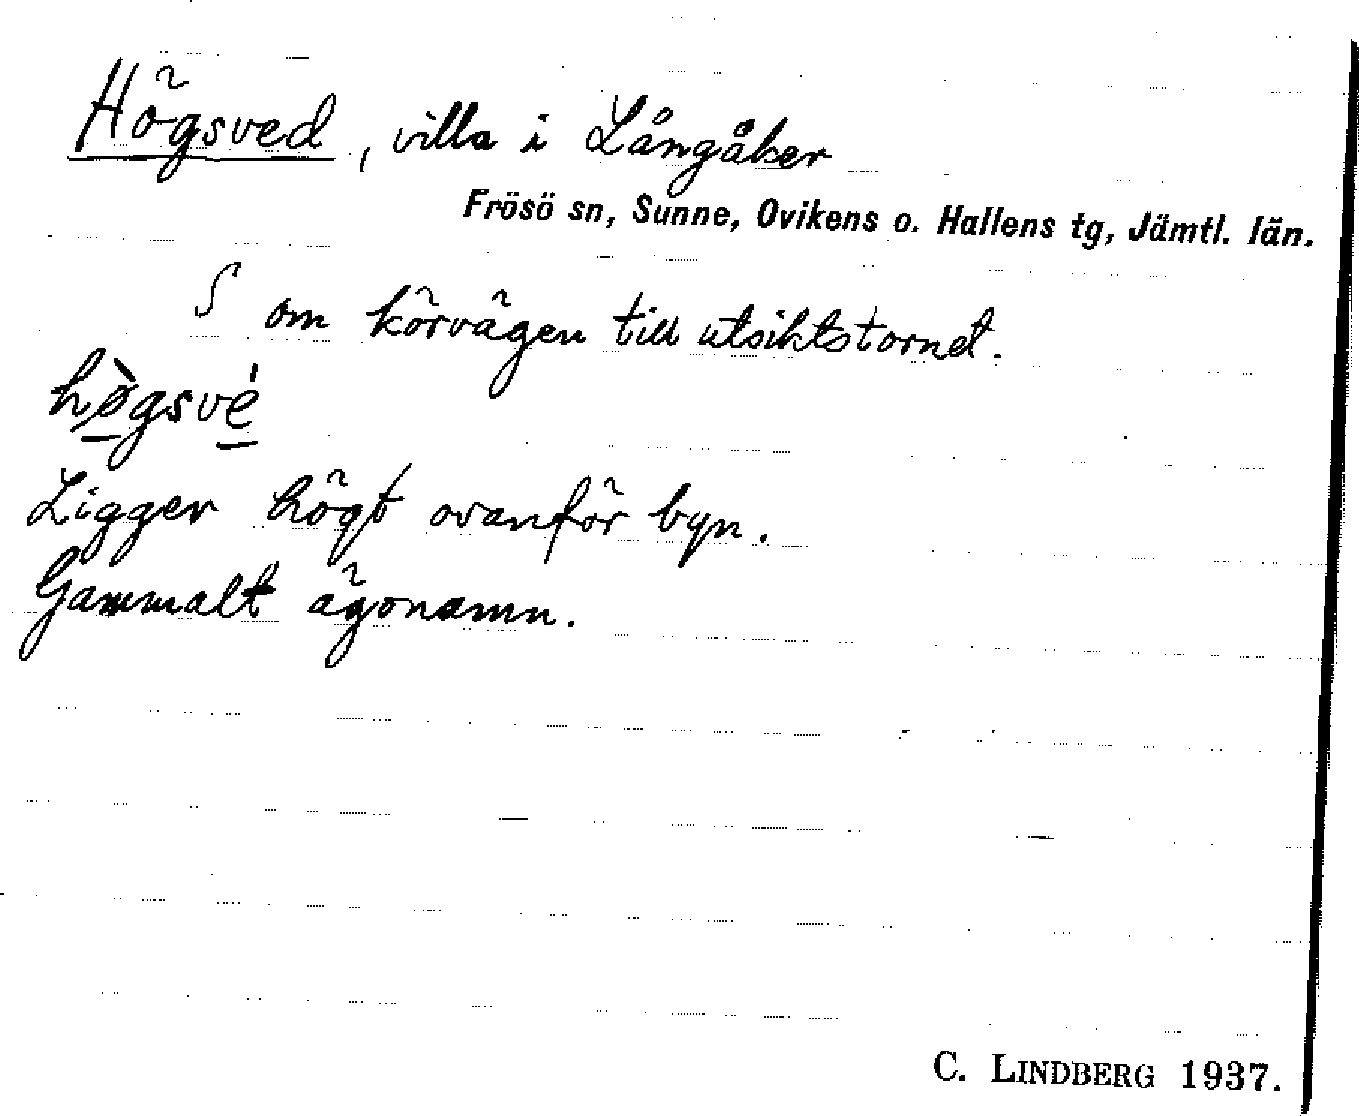 Högsved, villa i Långåker
Frösö sn, Sunne, Ovikens o. Hallens tg, Jämtl. län.
S om körvägen till utsiktstornet.
hø̀gsvé
Ligger högt ovanför byn.
Gammalt ägonamn.
C. LINDBERG 1937.